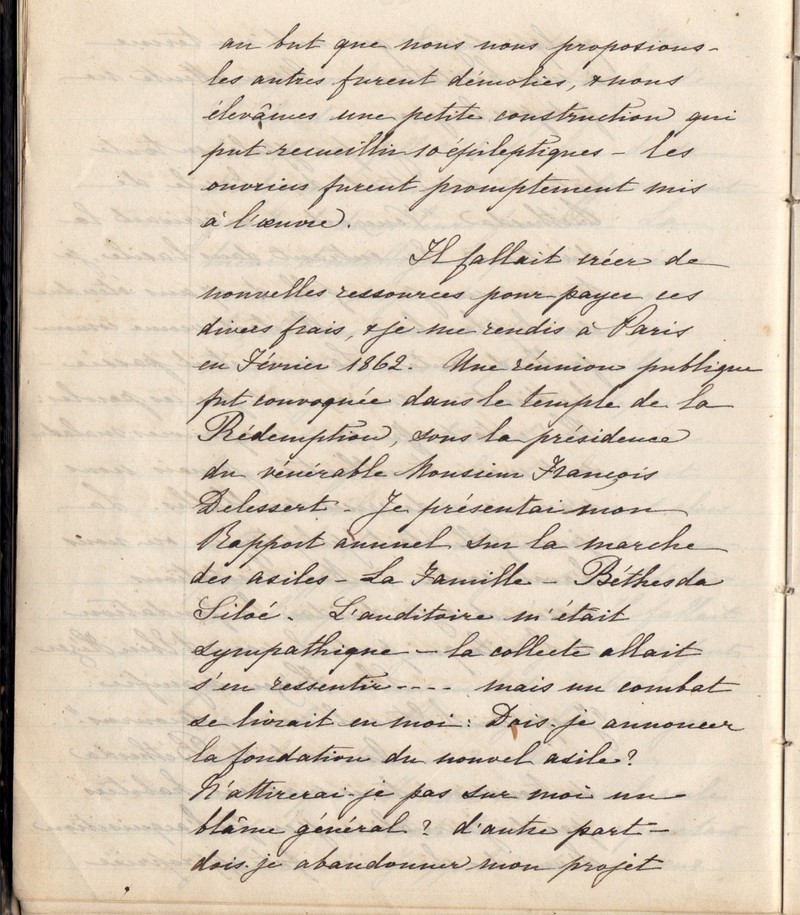 au but que nous nous proposions -
les autres furent démolies, & nous
élevâmes une petite construction qui
put recueillir 10 épileptiques - les
ouvriers furent promptement mis
à l'œuvre.
Il fallait créer de
nouvelles ressources pour payer ces
divers frais, & je me rendis à Paris
en Février 1862. Une réunion publique
fut convoquée dans le temple de la
Rédemption, sous la présidence
du vénérable Monsieur François
Delessert - Je présentai mon
Rapport annuel sur la marche
des asiles - La Famille - Béthesda
Siloé. L'auditoire m'était
sympathique - la collecte allait
s'en ressentir - - - - mais un combat
se livrait en moi : Dois-je annoncer
la fondation du nouvel asile ?
N'attirerai-je pas sur moi un
blâme général ? d'autre part -
dois-je abandonner mon projet